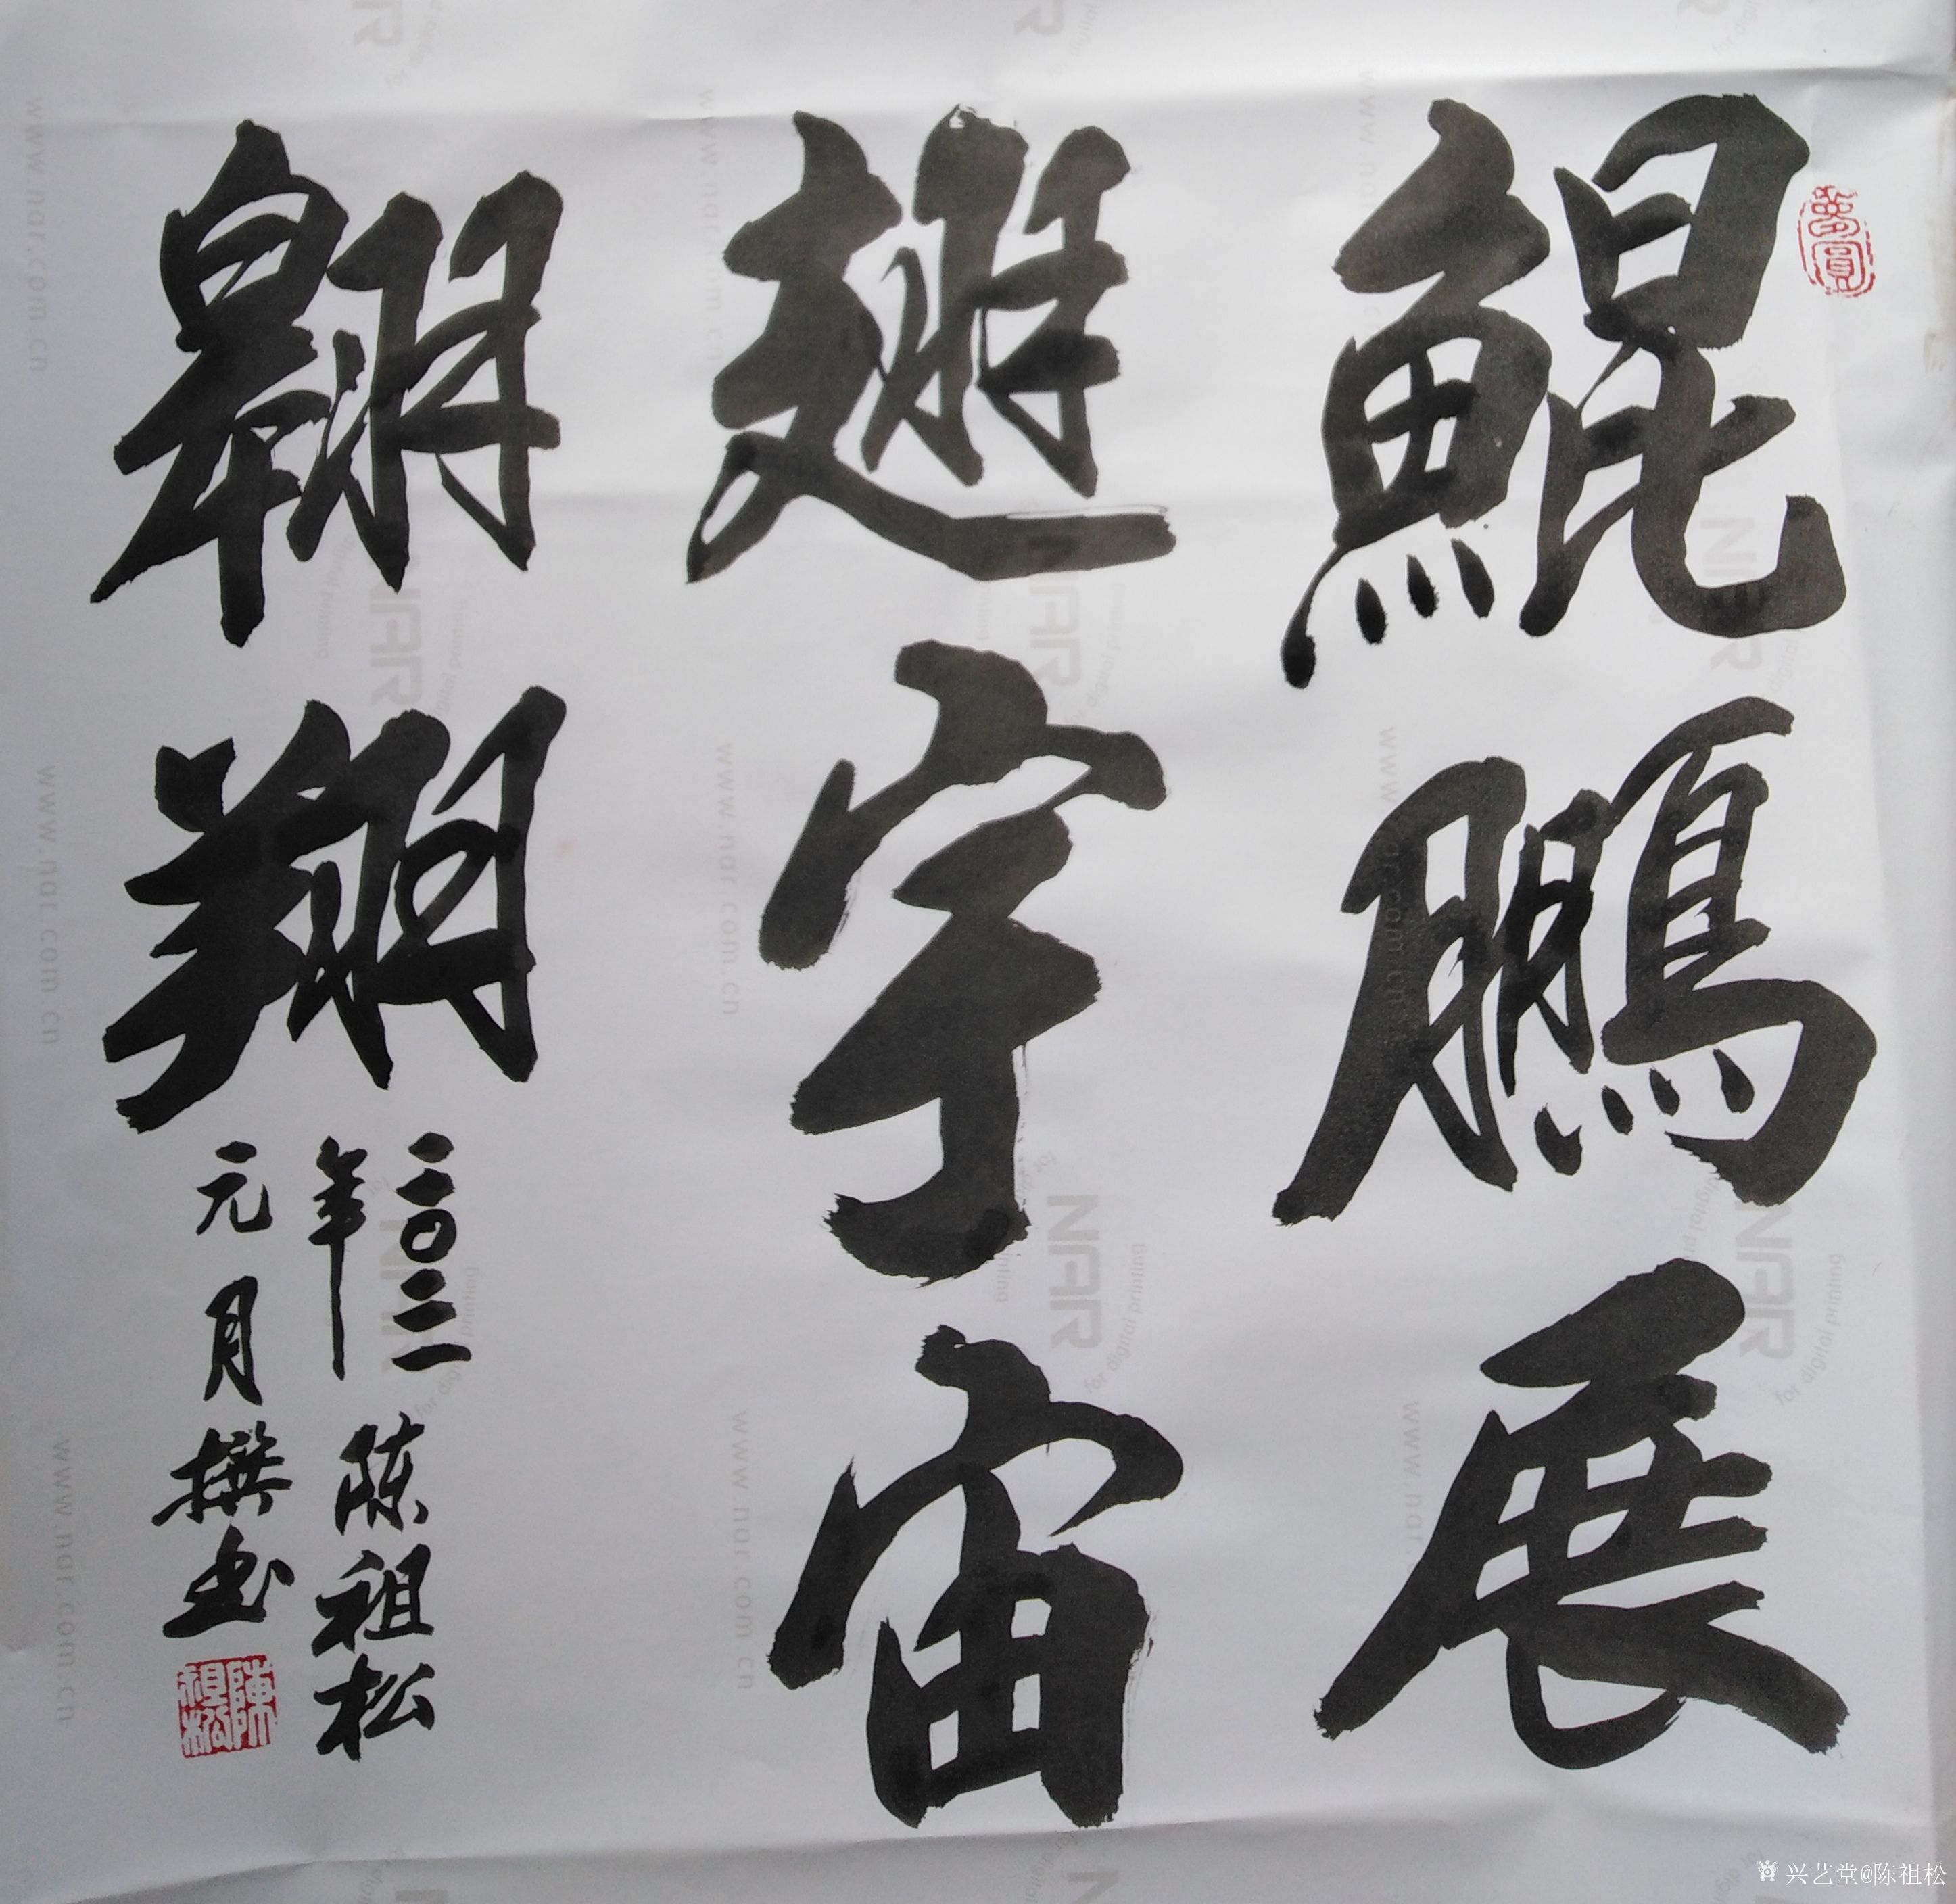 鯤鵬展
翅宇宙
翱翔
二〇二一
年 陈祖松
元月撰书
陳祖松
www.nar.com.cn
NAR
for digital printing
兴艺堂@陈祖松